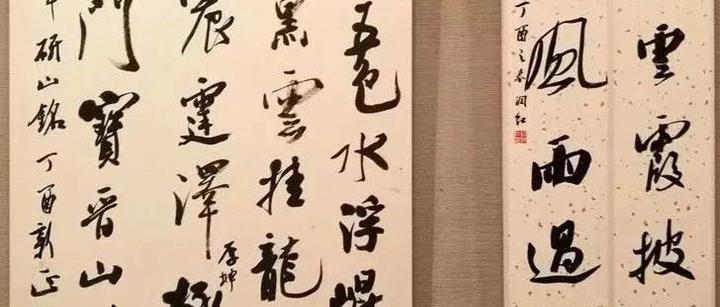 雲霞披
風雨過
丁酉之春潤紅
五色水浮崑
黑雲挂龍
震霆澤極
厚坤
門寶晉山
研山銘丁酉敦正